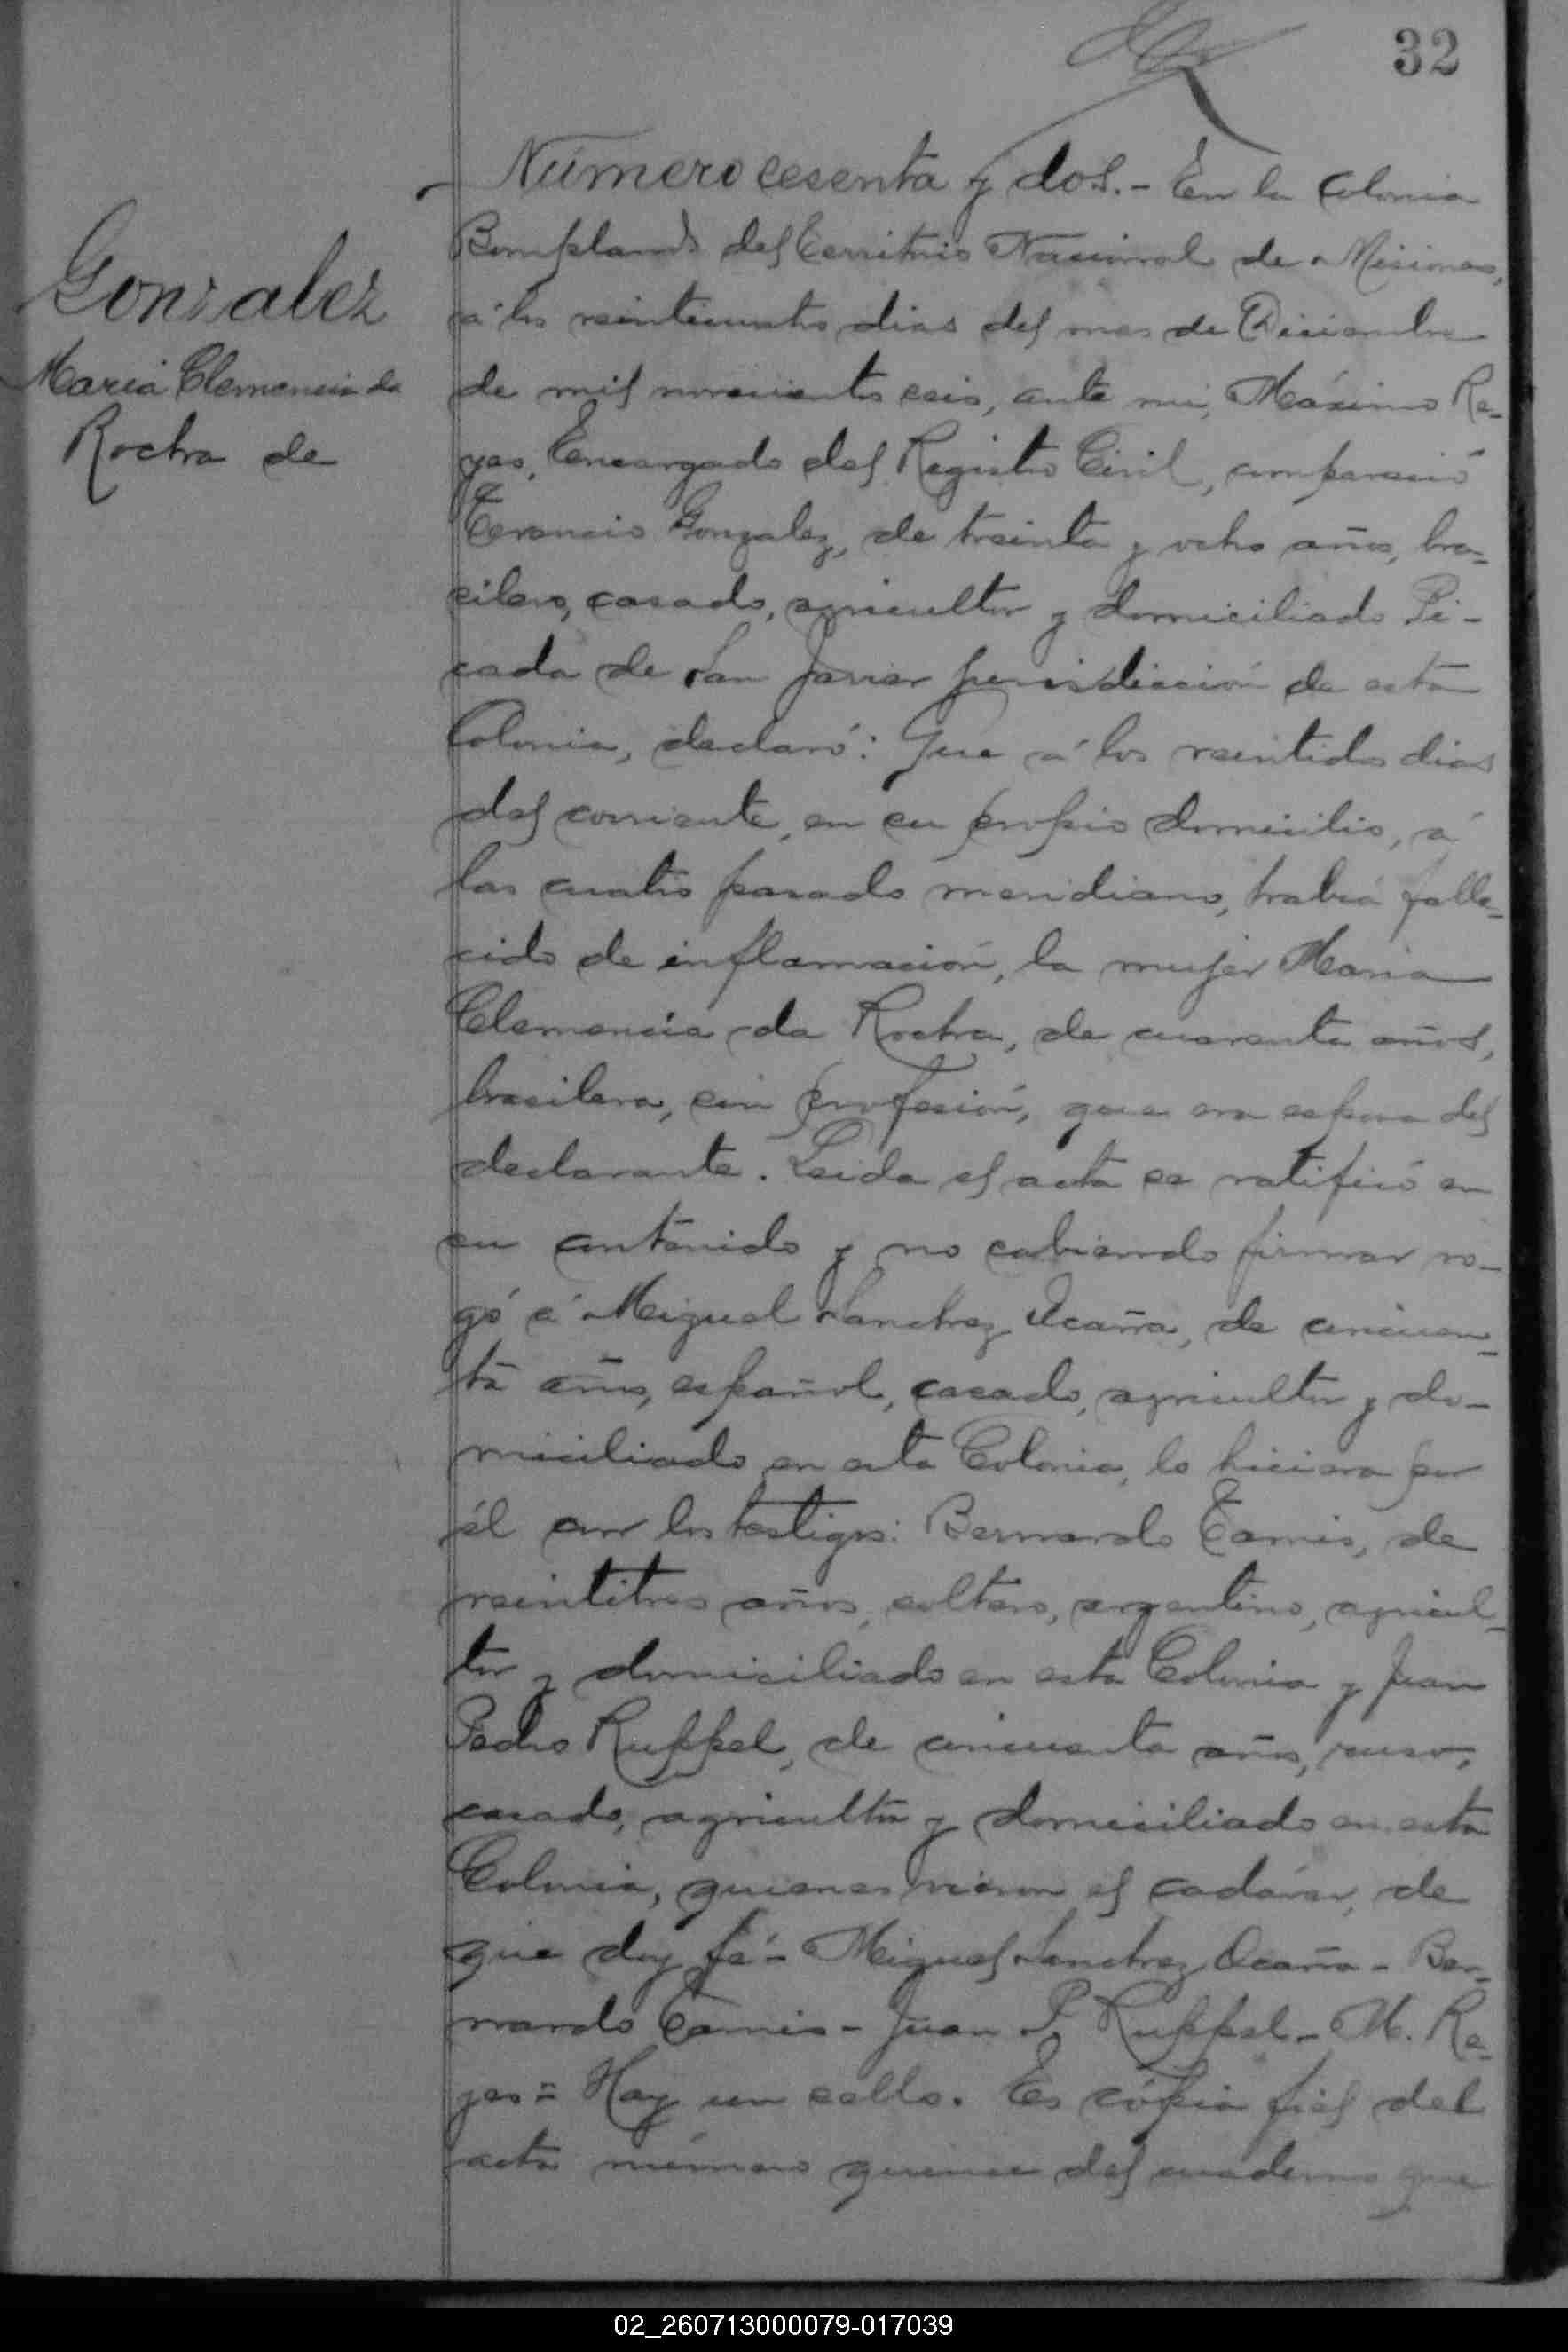 32
Número sesenta y dos.- En la Colonia
Bompland del Territorio Nacional de Misiones,
Gonzalez
á los veinticuatro dias del mes de Diciembre
Maria Clemencia da
de mil novecientos seis, ante mi, Máximo Re-
Rocha de
yes, Encargado del Registro Civil, compareció
Terencio Gonzalez, de treinta y ocho años, bra-
silero, casado, agricultor y domiciliado Pi-
cada de San Javier jurisdicción de esta
Colonia, declaró: Que á los veintidos dias
del corriente, en su propio domicilio, á
las cuatro pasado meridiano, habia falle-
cido de inflamación, la mujer Maria
Clemencia da Rocha, de cuarenta años,
brasilera, sin profesión, que era esposa del
declarante. Leida el acta se ratificó en
su contenido y no sabiendo firmar ro-
gó á Miguel Sanchez Ocaña, de cincuen-
ta años, español, casado, agricultor y do-
miciliado en esta Colonia, lo hiciera por
él con los testigos: Bernardo Tamis, de
veintitres años, soltero, argentino, agricul-
tor y domiciliado en esta Colonia y Juan
Pedro Ruppel, de cincuenta años, ruso,
casado, agricultor y domiciliado en esta
Colonia, quienes vieron el cadáver, de
que doy fé- Miguel Sanchez Ocaña - Ber-
nardo Tamis - Juan P. Ruppel - M. Re-
yes = Hay un sello. Es cópia fiel del
acta número quince del cuaderno que
02_260713000079-017039